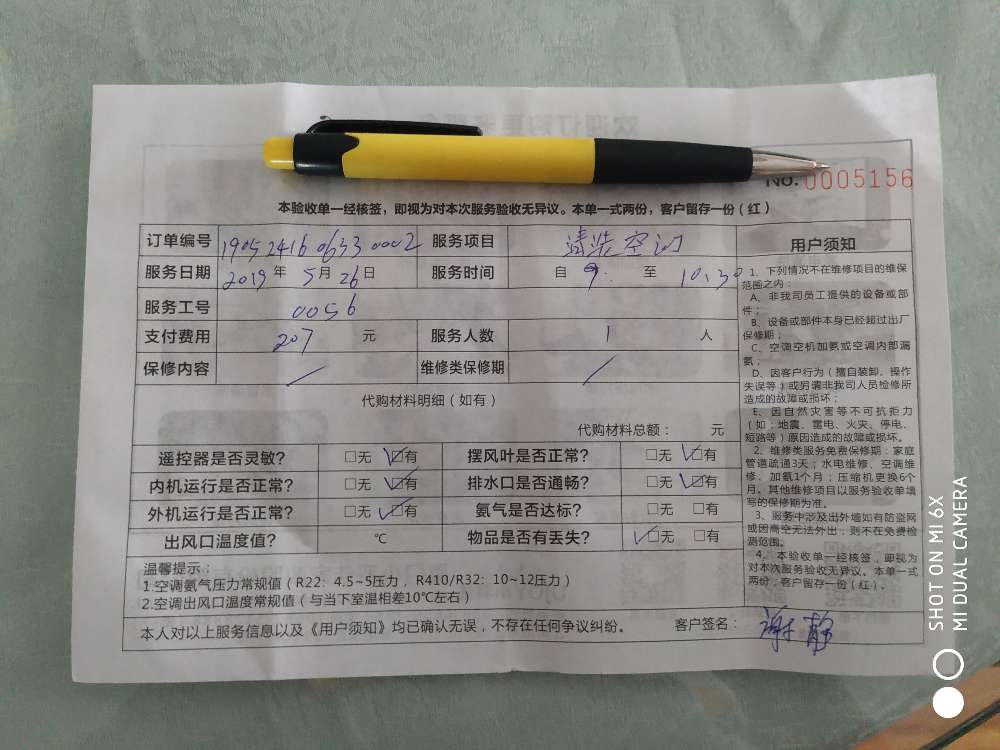 No. 0005156
本验收单一经核签，即视为对本次服务验收无异议。本单一式两份，客户留存一份（红）
订单编号 19052416 0633 0002 服务项目 清装空调
服务日期 2019年 5月 26日 服务时间 自 9: 至 10:30
服务工号 0056
支付费用 207 元 服务人数 1 人
保修内容 / 维修类保修期 /
代购材料明细（如有）
代购材料总额： 元
遥控器是否灵敏？ □无 ☑有 摆风叶是否正常？ □无 ☑有
内机运行是否正常？ □无 ☑有 排水口是否通畅？ □无 ☑有
外机运行是否正常？ □无 ☑有 氨气是否达标？ □无 □有
出风口温度值？ ℃ 物品是否有丢失？ ☑无 □有
温馨提示：
1.空调氨气压力常规值（R22：4.5~5压力，R410/R32：10~12压力）
2.空调出风口温度常规值（与当下室温相差10℃左右）
本人对以上服务信息以及《用户须知》均已确认无误，不存在任何争议纠纷。 客户签名： 谢静
用户须知
1、下列情况不在维修项目的维保
范围之内：
A、非我司员工提供的设备或部
件；
B、设备或部件本身已经超过出厂
保修期；
C、空调空机加氨或空调内部漏
氨；
D、因客户行为（擅自装卸、操作
失误等）或另请非我司人员检修所
造成的故障或损坏；
E、因自然灾害等不可抗拒力
（如：地震、雷电、火灾、停电、
短路等）原因造成的故障或损坏。
2、维修类服务免费保修期：家庭
管道疏通3天；水电维修、空调维
修、加氨1个月；压缩机更换6个
月。其他维修项目以服务验收单填
写的保修期为准。
3、服务中涉及出外墙如有防盗网
或因高空无法外出；则不在免费检
测范围。
4、本验收单一经核签，即视为
对本次服务验收无异议。本单一式
两份，客户留存一份（红）。
SHOT ON MI 6X
MI DUAL CAMERA